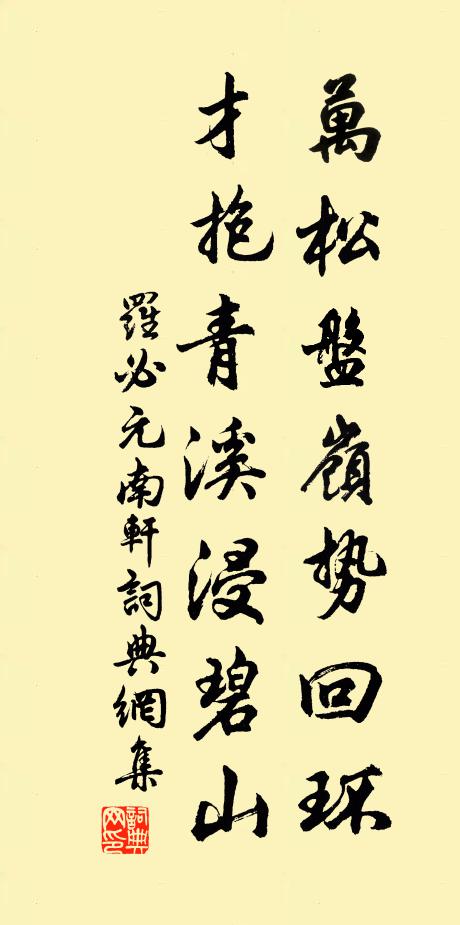 萬松盤嶺勢回环
才抱青溪浸碧山
羅必元南軒詞典網集
詞典網印